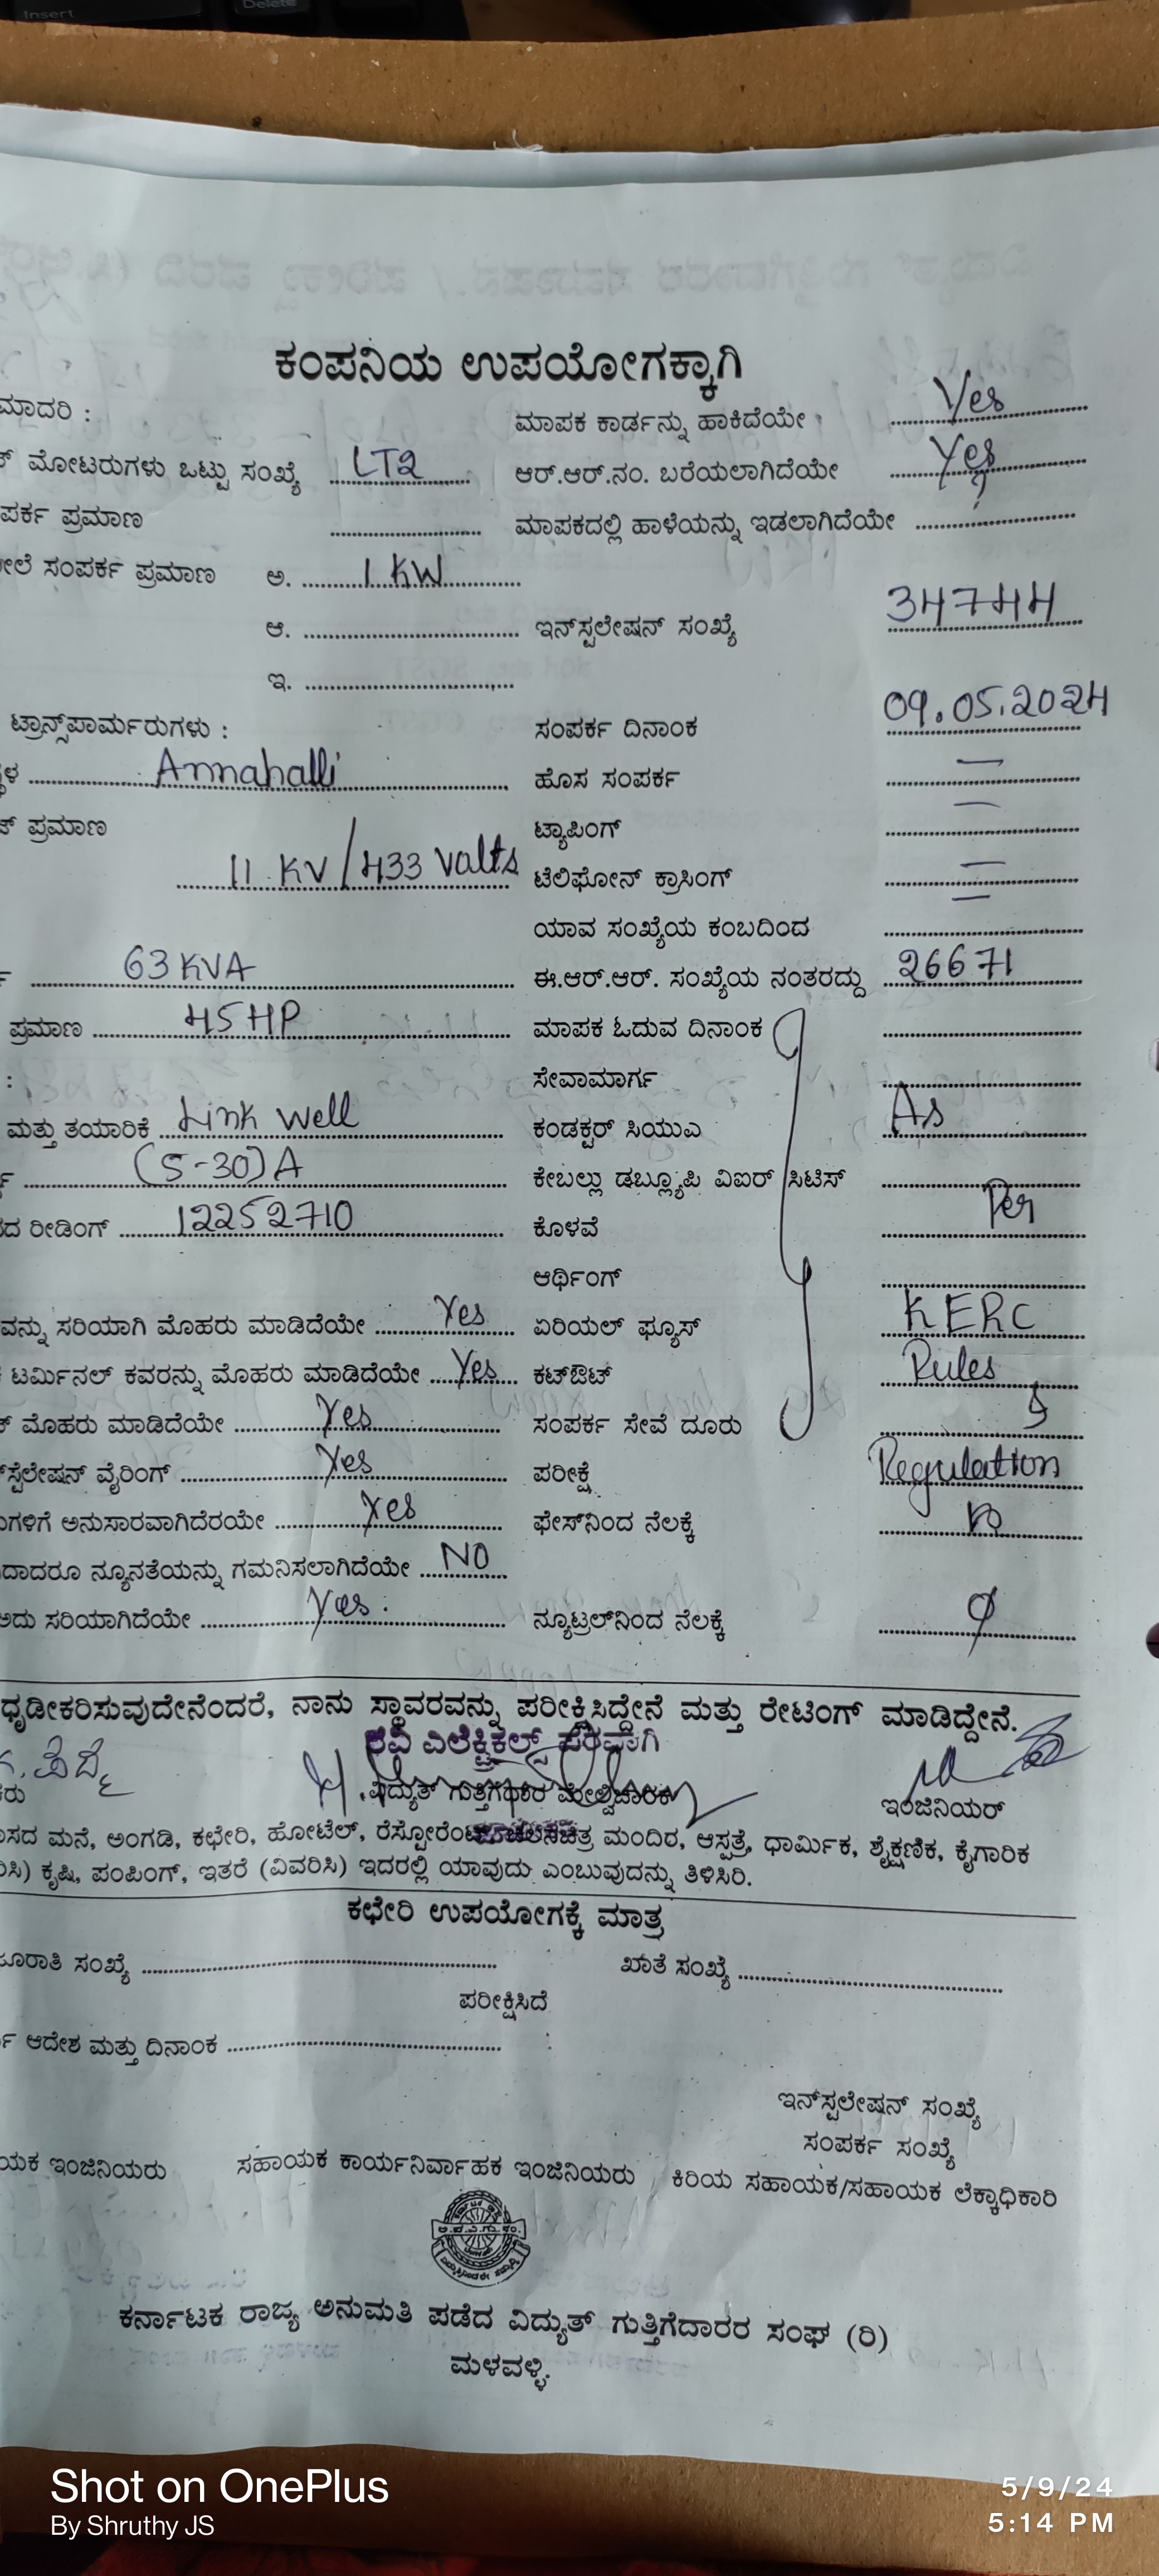 Insert
Delete
ಕಂಪನಿಯ ಉಪಯೋಗಕ್ಕಾಗಿ
ಮಾದರಿ : ಮಾಪಕ ಕಾರ್ಡನ್ನು ಹಾಕಿದೆಯೇ Yes
ಮೋಟರುಗಳು ಒಟ್ಟು ಸಂಖ್ಯೆ LT2 ಆರ್.ಆರ್.ನಂ. ಬರೆಯಲಾಗಿದೆಯೇ Yes
ಪ್ರಮಾಣ ಮಾಪಕದಲ್ಲಿ ಹಾಳೆಯನ್ನು ಇಡಲಾಗಿದೆಯೇ
ಸಂಪರ್ಕ ಪ್ರಮಾಣ ಅ. 1 KW
ಆ. ಇನ್‌ಸ್ಟಲೇಷನ್ ಸಂಖ್ಯೆ 34744
ಇ.
ಟ್ರಾನ್ಸ್‌ಪಾರ್ಮರುಗಳು : ಸಂಪರ್ಕ ದಿನಾಂಕ 09.05.2024
Annahalli ಹೊಸ ಸಂಪರ್ಕ —
ಪ್ರಮಾಣ ಟ್ಯಾಪಿಂಗ್ —
11 KV/433 Valts ಟೆಲಿಫೋನ್ ಕ್ರಾಸಿಂಗ್ —
ಯಾವ ಸಂಖ್ಯೆಯ ಕಂಬದಿಂದ —
63 KVA ಈ.ಆರ್.ಆರ್. ಸಂಖ್ಯೆಯ ನಂತರದ್ದು 26671
ಪ್ರಮಾಣ 45 HP ಮಾಪಕ ಓದುವ ದಿನಾಂಕ
: ಸೇವಾಮಾರ್ಗ
ಮತ್ತು ತಯಾರಿಕೆ Link Well ಕಂಡಕ್ಟರ್ ಸಿಯುಎ As
(5-30)A ಕೇಬಲ್ಲು ಡಬ್ಲ್ಯೂಪಿ ವಿಐರ್ ಸಿಟಿಸ್
ರೀಡಿಂಗ್ 12252710 ಕೊಳವೆ Per
ಆರ್ಥಿಂಗ್
ಸರಿಯಾಗಿ ಮೊಹರು ಮಾಡಿದೆಯೇ Yes ಏರಿಯಲ್ ಫ್ಯೂಸ್ KERC
ಟರ್ಮಿನಲ್ ಕವರನ್ನು ಮೊಹರು ಮಾಡಿದೆಯೇ Yes ಕಟ್‌ಔಟ್ Rules
ಮೊಹರು ಮಾಡಿದೆಯೇ Yes ಸಂಪರ್ಕ ಸೇವೆ ದೂರು
ವೈರಿಂಗ್ Yes ಪರೀಕ್ಷೆ Regulation
ಅನುಸಾರವಾಗಿದೆರಯೇ Yes ಫೇಸ್‌ನಿಂದ ನೆಲಕ್ಕೆ
ನ್ಯೂನತೆಯನ್ನು ಗಮನಿಸಲಾಗಿದೆಯೇ NO
ಅದು ಸರಿಯಾಗಿದೆಯೇ Yes ನ್ಯೂಟ್ರಲ್‌ನಿಂದ ನೆಲಕ್ಕೆ
ಧೃಡೀಕರಿಸುವುದೇನೆಂದರೆ, ನಾನು ಸ್ಥಾವರವನ್ನು ಪರೀಕ್ಷಿಸಿದ್ದೇನೆ ಮತ್ತು ರೇಟಿಂಗ್ ಮಾಡಿದ್ದೇನೆ.
ರವಿ ಎಲೆಕ್ಟ್ರಿಕಲ್ಸ್ ಪರವಾಗಿ
ವಿದ್ಯುತ್ ಗುತ್ತಿಗೆದಾರ ಮೇಲ್ವಿಚಾರಕ ಇಂಜಿನಿಯರ್
ಮನೆ, ಅಂಗಡಿ, ಕಛೇರಿ, ಹೋಟೆಲ್, ರೆಸ್ಟೋರೆಂಟ್ ಚಲನಚಿತ್ರ ಮಂದಿರ, ಆಸ್ಪತ್ರೆ, ಧಾರ್ಮಿಕ, ಶೈಕ್ಷಣಿಕ, ಕೈಗಾರಿಕ
ಕೃಷಿ, ಪಂಪಿಂಗ್, ಇತರೆ (ವಿವರಿಸಿ) ಇದರಲ್ಲಿ ಯಾವುದು ಎಂಬುವುದನ್ನು ತಿಳಿಸಿರಿ.
ಕಛೇರಿ ಉಪಯೋಗಕ್ಕೆ ಮಾತ್ರ
ಸಂಖ್ಯೆ ಖಾತೆ ಸಂಖ್ಯೆ
ಪರೀಕ್ಷಿಸಿದೆ
ಆದೇಶ ಮತ್ತು ದಿನಾಂಕ :
ಇನ್‌ಸ್ಟಲೇಷನ್ ಸಂಖ್ಯೆ
ಸಂಪರ್ಕ ಸಂಖ್ಯೆ
ಇಂಜಿನಿಯರು ಸಹಾಯಕ ಕಾರ್ಯನಿರ್ವಾಹಕ ಇಂಜಿನಿಯರು ಕಿರಿಯ ಸಹಾಯಕ/ಸಹಾಯಕ ಲೆಕ್ಕಾಧಿಕಾರಿ
ಕರ್ನಾಟಕ ರಾಜ್ಯ ಅನುಮತಿ ಪಡೆದ ವಿದ್ಯುತ್ ಗುತ್ತಿಗೆದಾರರ ಸಂಘ (ರಿ)
ಮಳವಳ್ಳಿ.
Shot on OnePlus
By Shruthy JS
5/9/24
5:14 PM